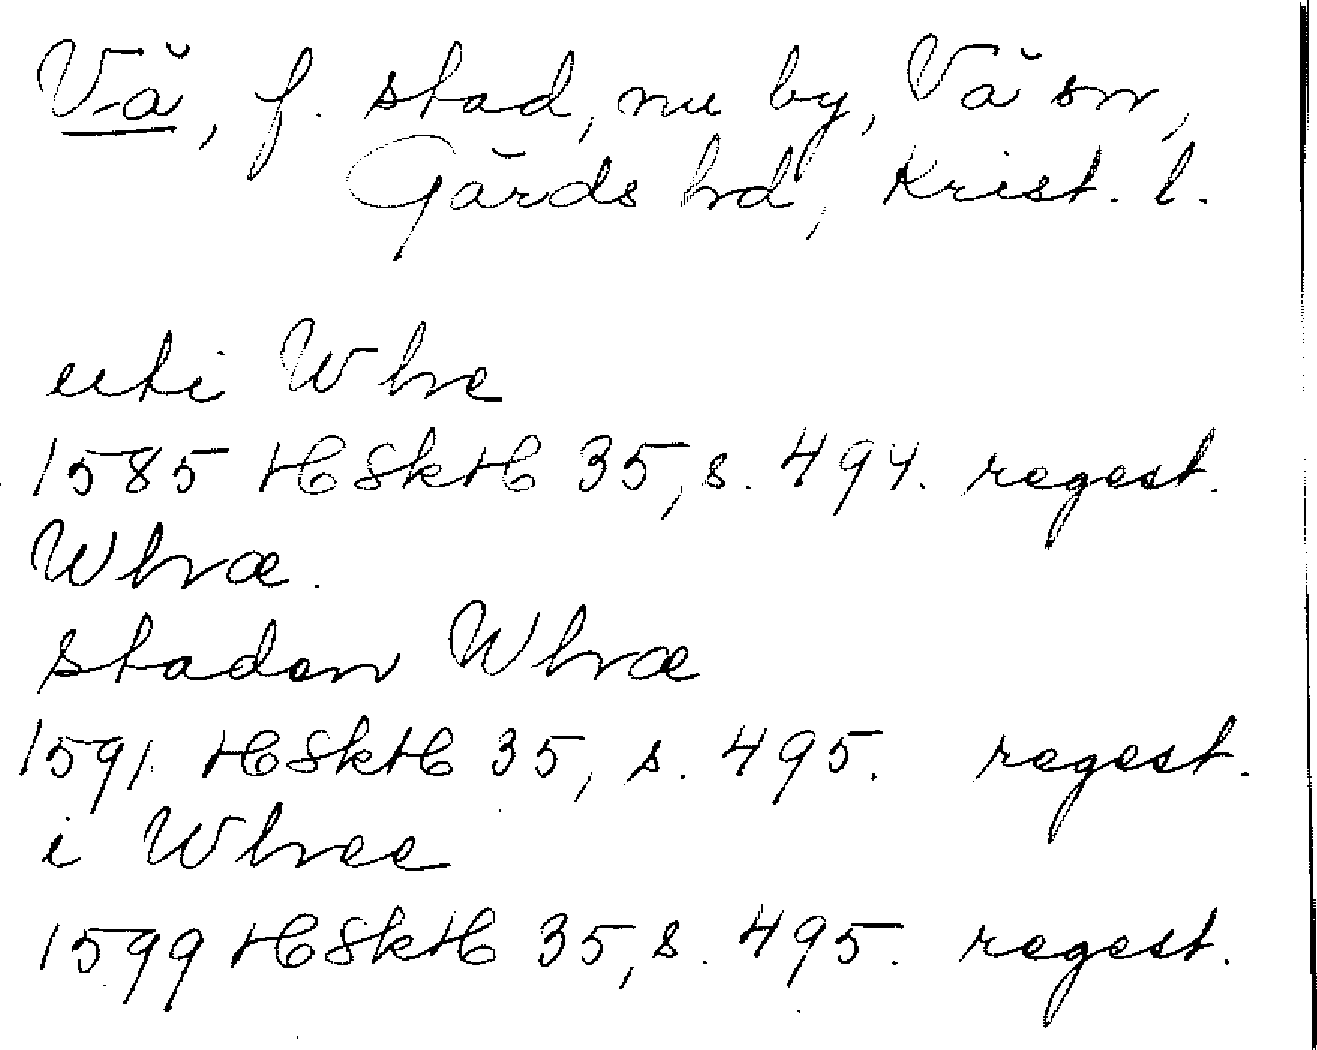 Vä, f. stad, nu by, Vä sn,
Gärds hd, Krist. l.
uti Whe
1585 HSkH 35, s. 494. regest.
Whæ.
staden Whæ
1591 HSkH 35, s. 495. regest.
i Whee
1599 HSkH 35, s. 495. regest.